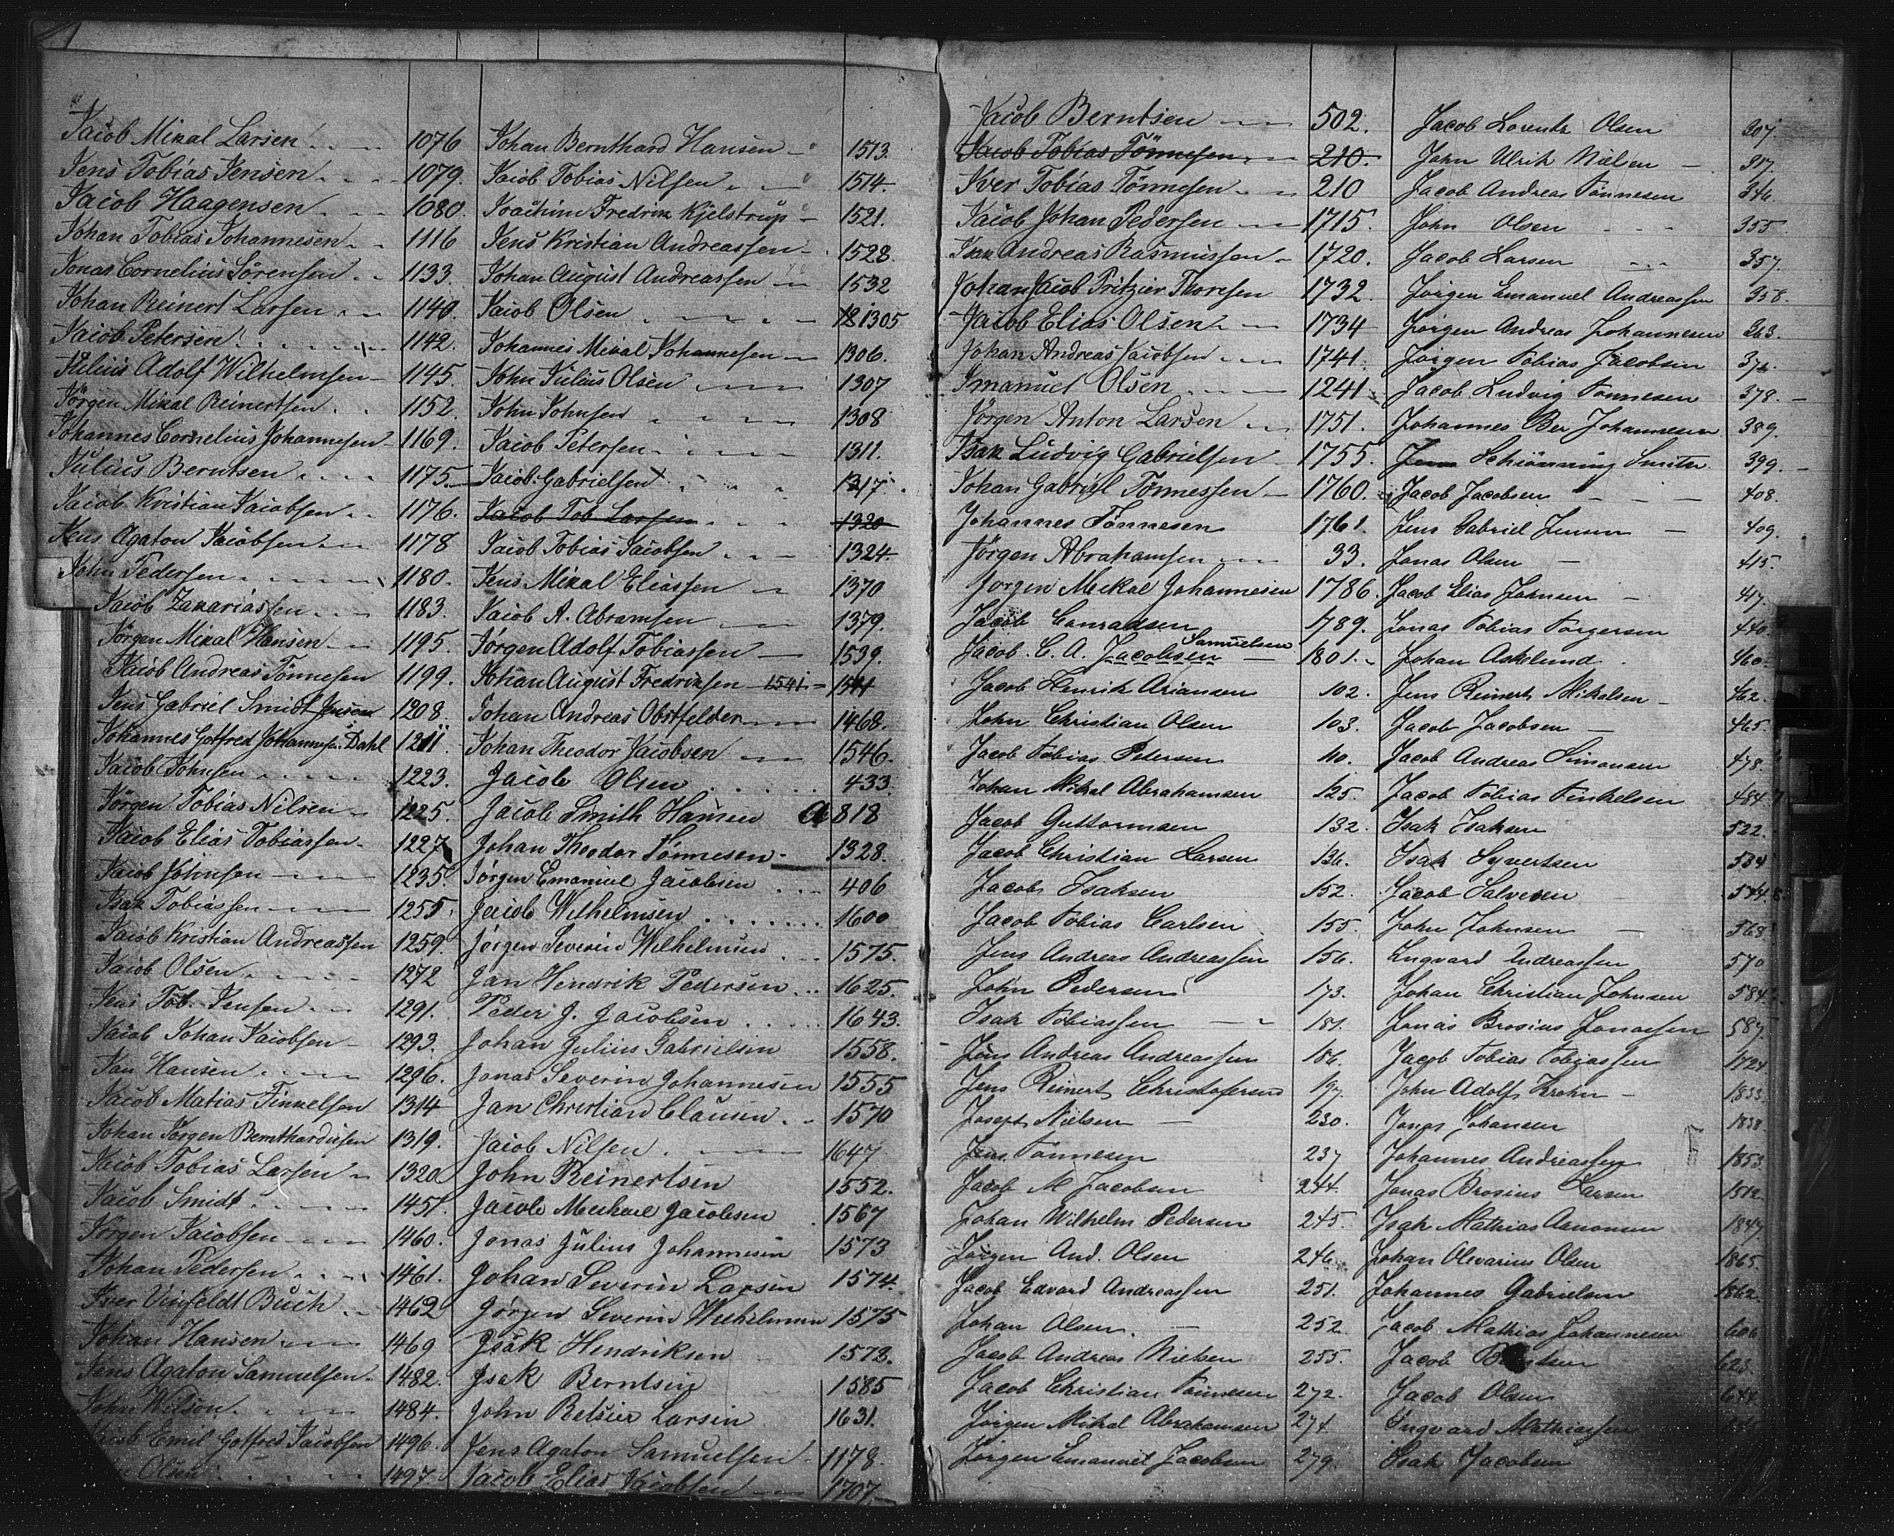 Jacob Mikal Larsen 1076
Jens Tobias Jensen 1079.
Jacob Haagensen 1080.
Johan Tobias Johannesen 1116
Jonas Cornelius Sörensen 1133.
Johan Reinert Larsen 1140.
Jacob Petersen 1142.
Julius Adolf Wilhelmsen 1145.
Jörgen Mikal Reinertsen 1152.
Johannes Cornelius Johannesen 1169.
Julius Berntsen 1175.
Jacob Kristian Jacobsen 1176.
Jens Agaton Jacobsen 1178
John Pedersen 1180.
Jacob Zakariassen 1183.
Jörgen Mikal Hansen 1195.
Jacob Andreas Tönnesen 1199.
Jens Gabriel Smidt Jensen 1208.
Johannes Gotfred Johannesen Dahl 1211
Jacob Johnsen 1223.
Jörgen Tobias Nilsen 1225.
Jacob Elias Tobiassen 1227
Jacob Johnsen 1235.
Isak Tobiassen 1255.
Jacob Kristian Andreassen 1259.
Jacob Olsen 1272
Jens Tob. Jensen 1291.
Jacob Johan Jacobsen 1293.
Jan Hansen 1296.
Jacob Matias Finkelsen 1314
Johan Jörgen Bernthardusen 1319.
Jacob Tobias Larsen 1320
Jacob Smidt 1457.
Jörgen Jacobsen 1460.
Johan Pedersen 1461.
Iver Vinfeldt Buch 1462
Johan Hansen 1469
Jens Agaton Samuelsen 1482.
John Wilson 1484.
Jacob Emil Gotfred Jacobsen 1496.
Olsen 1497.
Johan Bernthard Hansen 1513.
Jacob Tobias Nilsen 1514.
Joachim Fredrik Kjelstrup 1521.
Jens Kristian Andreassen 1528.
Johan August Andreassen 1532
Jacob Olsen 1305
Johannes Mikal Johannesen 1306.
John Julius Olsen 1307
John Johnsen 1308
Jacob Petersen 1311.
Jacob Gabrielsen 1317
Jacob Tob Larsen 1320
Jacob Tobias Jacobsen 1324.
Jens Mikal Eliassen 1370
Jacob A. Abramsen 1379.
Jörgen Adolf Tobiassen 1539.
Johan August Fredriksen 1541 1541
Johan Andreas Obstfelder 1468.
Johan Theodor Jacobsen 1546.
Jacob Olsen 433.
Jacob Smith Hansen a 818
Johan Theodor Tönnesen 1328.
Jörgen Emanuel Jacobsen 406
Jacob Wilhelmsen 1600
Jørgen Severin Wilhelmsen 1575.
Jan Hendrik Pedersen 1625.
Peder J. Jacobsen 1643.
Johan Julius Gabrielsen 1558.
Jonas Severin Johannesen 1555
Jan Christian Clausen 1570
Jacob Nilsen 1647
John Reinertsen 1552.
Jacob Michael Jacobsen 1567
Jonas Julius Johannesen 1573
Johan Severin Larsen 1574.
Jørgen Severin Wilhelmsen 1575
Isak Hendriksen 1578.
Isak Berntsen 1585
John Betsier Larsen 1631.
Jens Agaton Samuelsen 1178.
Jacob Elias Jacobsen 1707.
Jacob Berntsen 502.
Jacob Tobias Tönnesen 210.
Iver Tobias Tönnesen 210
Jacob Johan Pedersen 1715.
Andreas Rasmussen 1720.
Johan Jacob Pritzier Thoresen 1732.
Jacob Elias Olsen 1734
Johan Andreas Jacobsen 1741.
Imanuel Olsen 1241
Jörgen Anton Larsen 1751.
Isak Ludvig Gabrielsen 1755.
Johan Gabriel Tönnessen 1760.
Johannes Tönnesen 1761.
Jörgen Abrahamsen 33.
Jørgen Mekal Johannesen 1786.
Jacob Conradsen 1789.
Jacob. C. A. Jacobsen Samuelsen 1801.
Jacob Henrik Ariansen 102.
John Christian Olsen 103.
Jacob Tobias Pedersen 110.
Johan Mikal Abrahamsen 125.
Jacob Guttormsen 132.
Jacob Christian Larsen 136.
Jacob Isaksen 152.
Jacob Tobias Carlsen 155.
Jens Andreas Andreassen 156.
John Pedersen 173.
Isak Tobiassen 181.
Jens Andreas Andreassen 156.
Jens Reinert Christofersen 197.
Joseph Nielsen 230.
Jens Tönnesen 237
Jacob M Jacobsen 244.
Johan Wilhelm Pedersen 245.
Jörgen And. Olsen 246.
Jacob Edvard Andreassen 251.
Johan Olsen. 252.
Jacob Andreas Nielsen 255.
Jacob Christian Tönnesen 272.
Jörgen Mikal Abrahamsen 274.
Jörgen Emanuel Jacobsen 279.
Jacob Lorentz Olsen 307.
John Ulrik Nielsen 317.
Jacob Andreas Tönnesen 346.
John Olsen 355.
Jacob Larsen 357.
Jörgen Emanuel Andreassen 358.
Jörgen Andreas Johannesen 363.
Jörgen Tobias Jacobsen 374.
Jacob Ludvig Tönnesen 378.
Johannes Ber Johannesen 389.
Jens Schiönning Smith 399.
Jacob Jacobsen 408.
Jens Gabriel Jensen 409.
Jonas Olsen 415.
Jacob Elias Johnsen 417.
Jonas Tobias Torgersen 440.
Johan Asklund 460.
Jens Reinert Mikelsen 462.
Jacob Jacobsen 465.
Jacob Andreas Simonsen 478.
Jacob Tobias Finkelsen 484.
Isak Isaksen 522.
Isak Syvertsen 534
Jacob Salvesen 544.
John Johnsen 568.
Ingvard Andreassen 570
Johan Christian Johnsen 584.
Jonas Brosius Jonassen 587.
Jacob Tobias Tobiassen 1724.
John Adolf Krohn 1833.
Jonas Johansen 1838.
Johannes Andreassen 1853.
Jonas Brosius Larsen 1512.
Isak Mathias Aanonsen 1847.
Johan Olevarius Olsen 1865.
Johannes Gabrielsen 1862.
Jacob Mathias Johannesen 606
Jacob 623.
Jacob Olsen 644.
Ingvard Mathiassen
Isak Jacobsen